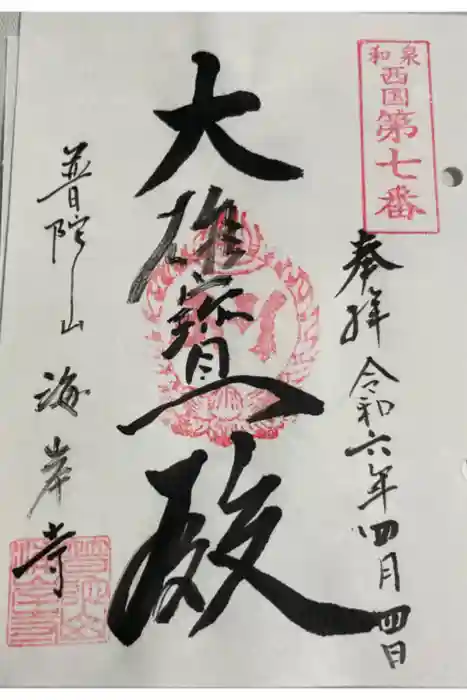 和泉
西国第七番
奉拝 令和六年四月四日
大雄寳殿
普陀山 海岸寺